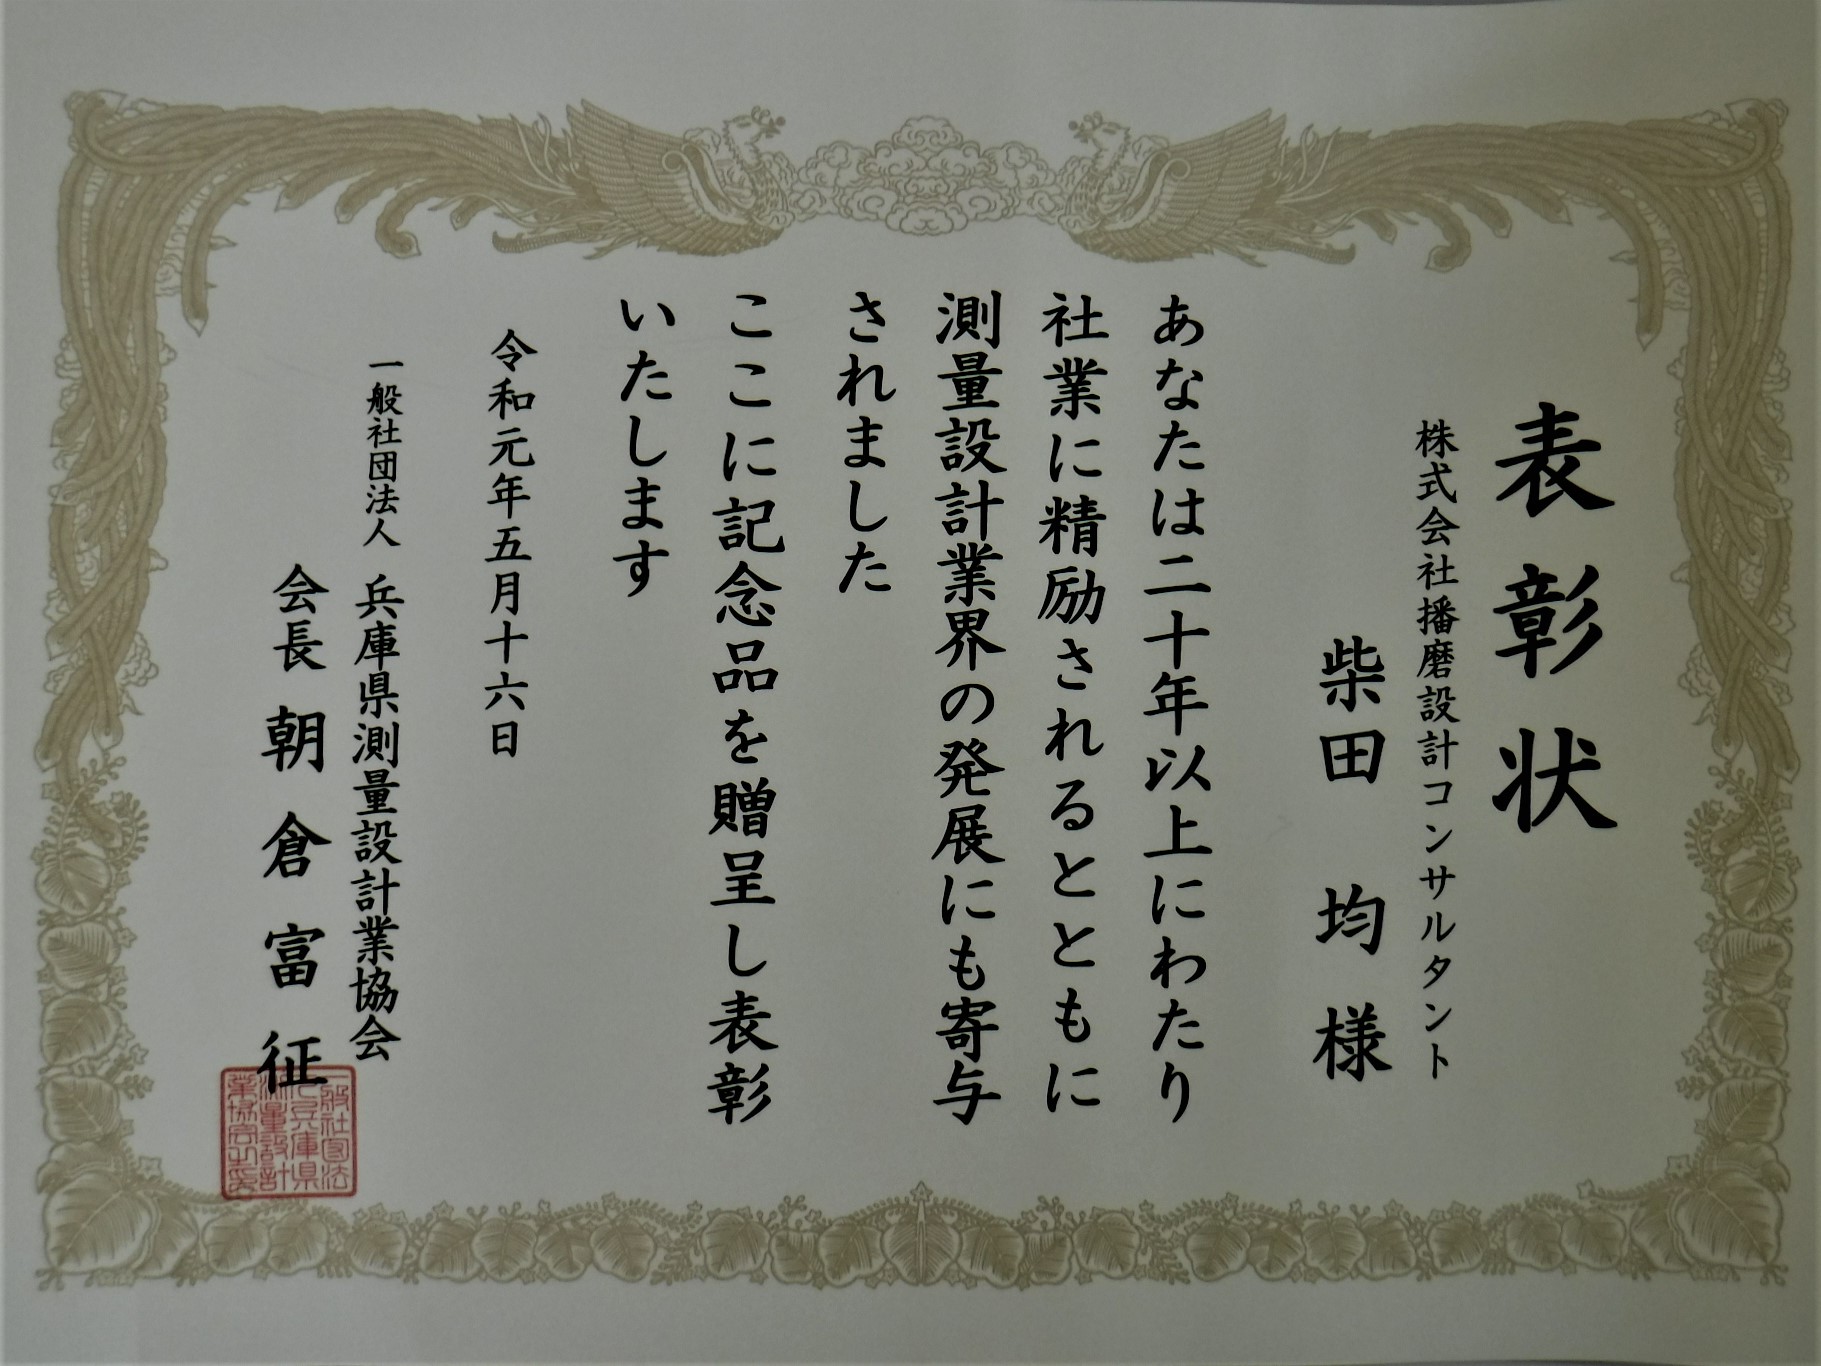 表彰状
株式会社播磨設計コンサルタント
柴田 均 様
あなたは二十年以上にわたり
社業に精励されるとともに
測量設計業界の発展にも寄与
されました
ここに記念品を贈呈し表彰
いたします
令和元年五月十六日
一般社団法人 兵庫県測量設計業協会
会長 朝倉富征
一般社団法
人兵庫県
測量設計
業協会之印